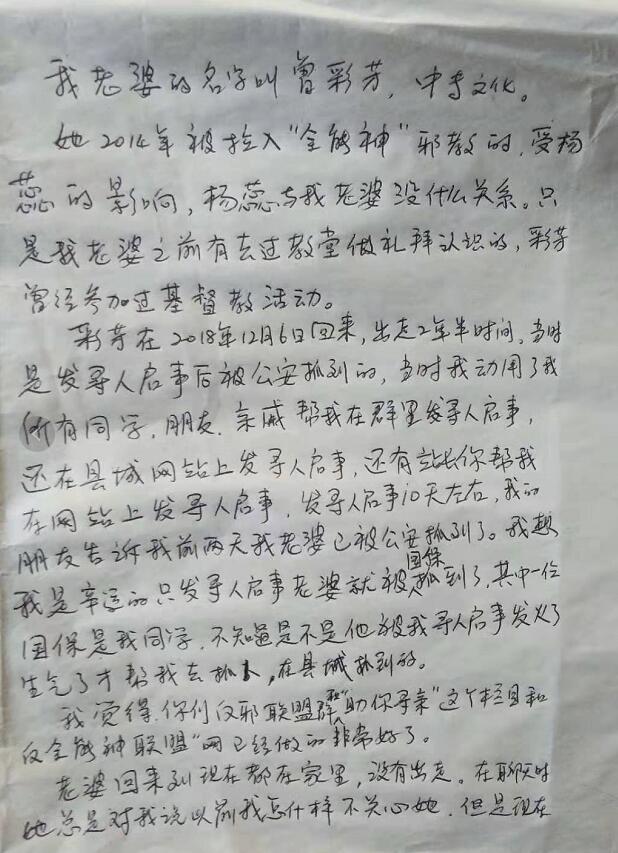 我老婆的名字叫曾彩芳，中专文化。
她2014年被拉入"全能神"邪教的，受杨
蕊的影响，杨蕊与我老婆没什么关系。只
是我老婆之前有去过教堂做礼拜认识的，彩芳
曾经参加过基督教活动。
彩芳在2018年12月6日回来，出走2年半时间。当时
是发寻人启事后被公安抓到的，当时我动用了我
所有同学、朋友、亲戚帮我在群里发寻人启事，
还在县城网站上发寻人启事，还有站长你帮我
在网站上发寻人启事，发寻人启事10天左右，我的
朋友告诉我前两天我老婆已被公安抓到了。我想
我是幸运的只发寻人启事老婆就被国保抓到了，其中一位
国保是我同学，不知道是不是他被我寻人启事发火了
生气了才帮我去抓人，在县城抓到的。
我觉得，你们反邪联盟群"助你寻亲"这个栏目和
反全能神联盟"网已经做的非常好了。
老婆回来到现在都在家里，没有出走。在聊天时
她总是对我说以前我怎什样不关心她，但是现在